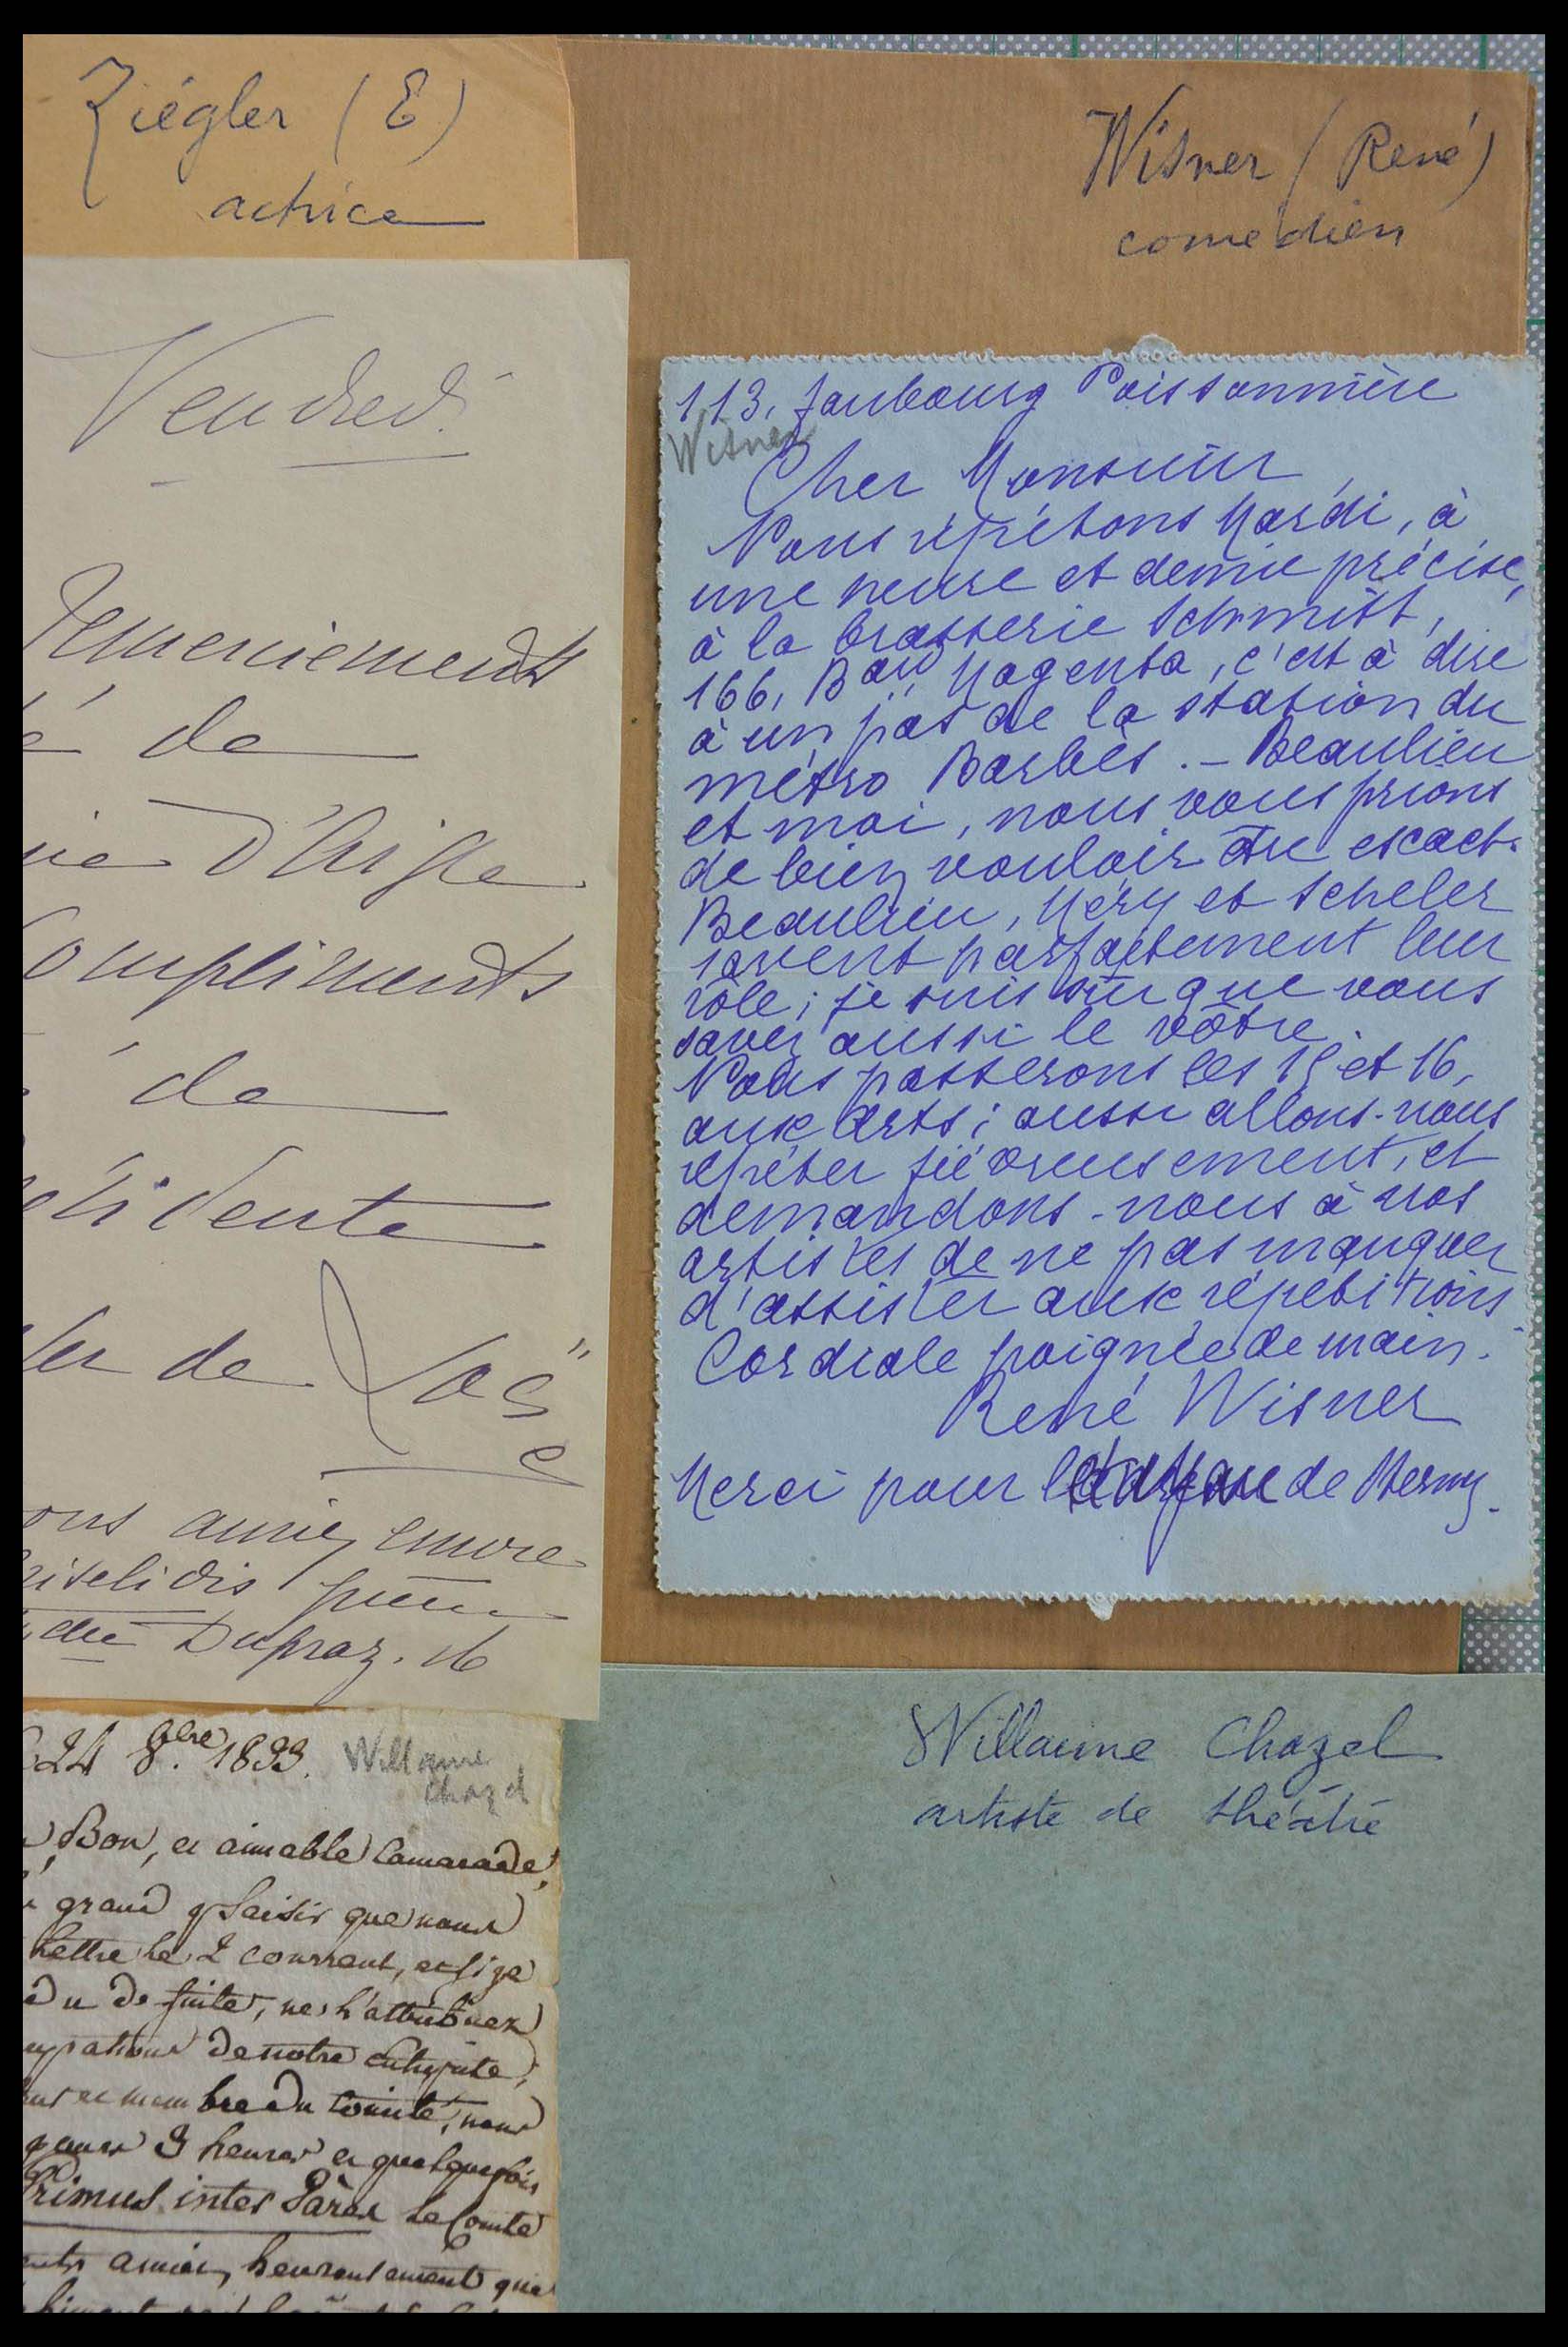 Ziégler (E)
actrice
Wisner (René)
comédien
Vendredi
Remerciements
é de
d'Aigle
Compliments
de
de
ons amiez encore
du Dupraz.
113, faubourg Poissonnière
Wisner
Cher Monsieur,
Nous répétons Mardi, à
une heure et demie précise,
à la brasserie Schmitt,
166, Bard Magenta, c'est à dire
à un pas de la station du
métro Barbès. – Beaulieu
et moi, nous vous prions
de bien vouloir être exact.
Beaulieu, Méry et Scheler
savent parfaitement leur
rôle; je suis sûr que vous
savez aussi le vôtre.
Nous passerons les 15 et 16,
aux Arts; aussi allons-nous
répéter fiévreusement, et
demandons-nous à nos
artistes de ne pas manquer
d'assister aux répétitions.
Cordiale poignée de main.
René Wisner
Merci pour de
24 8bre 1893. Willaume
Chazel
Bon, et aimable Camarade,
grand plaisir que nous
Lettre le 2 courrant, et si je
du de suite, ne l'attribuez
de notre
membre du Comité, nous
3 heures et quelquefois
Primus inter Pares le Comité
amies, heureusement que
Willaume Chazel
artiste de théâtre